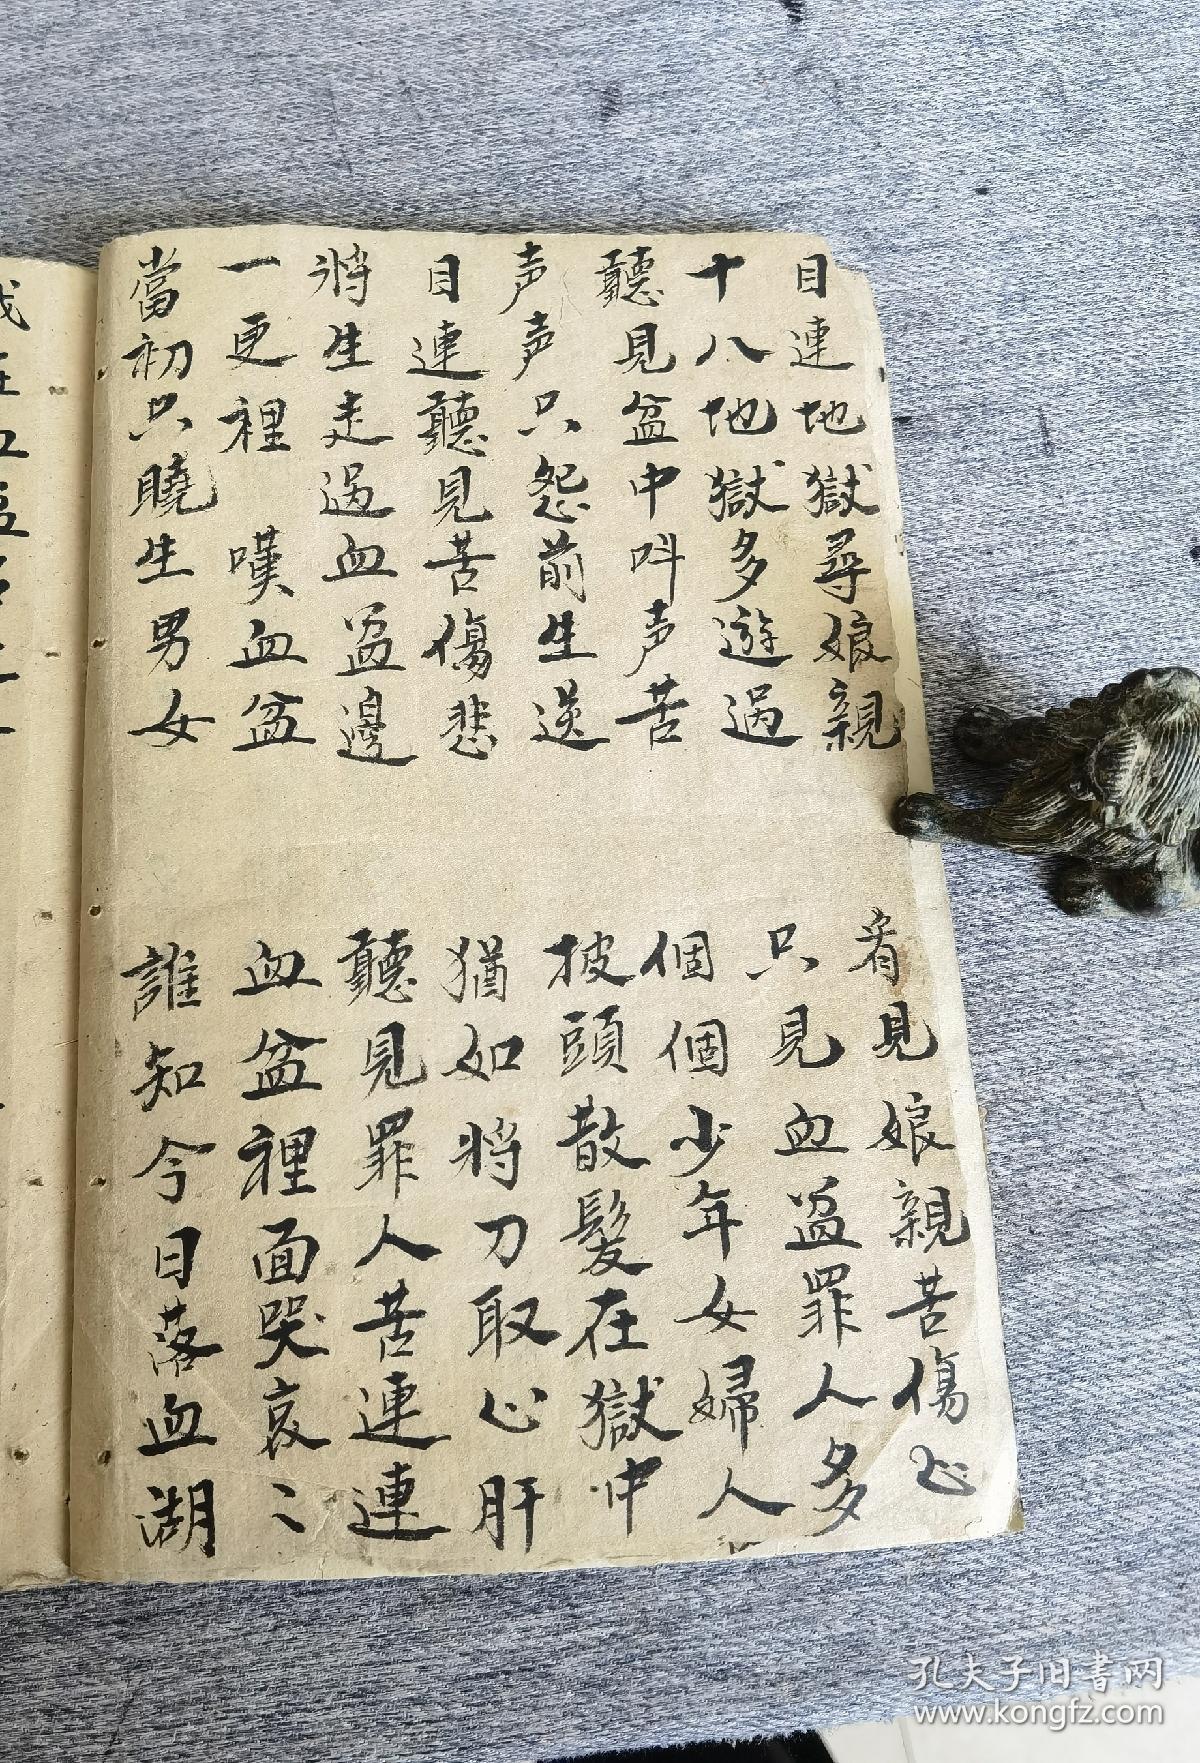 目連地獄尋娘親　看見娘親苦傷心
十八地獄多遊過　只見血盆罪人多
聽見盆中呌声苦　個個少年女婦人
声声只怨前生送　披頭散髮在獄中
目連聽見苦傷悲　猶如將刀取心肝
將生走過血盆邊　聽見罪人苦連連
一更裡嘆血盆　血盆裡面哭哀〻
當初只曉生男女　誰知今日落血湖
孔夫子旧書网
www.kongfz.com